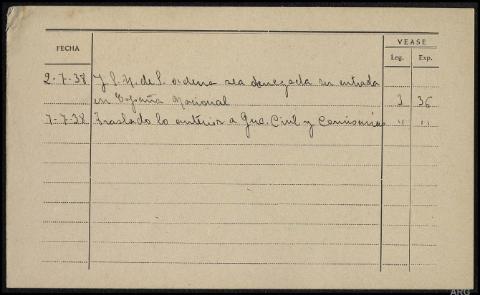 FECHA
VEASE
Leg. Exp.
2-7-38 J S. N. de S. ordena sea denegada su entrada
en España Nacional 3 36
7-7-38 Traslado lo anterior a Gua. Civil y Comisaría " "
ARG